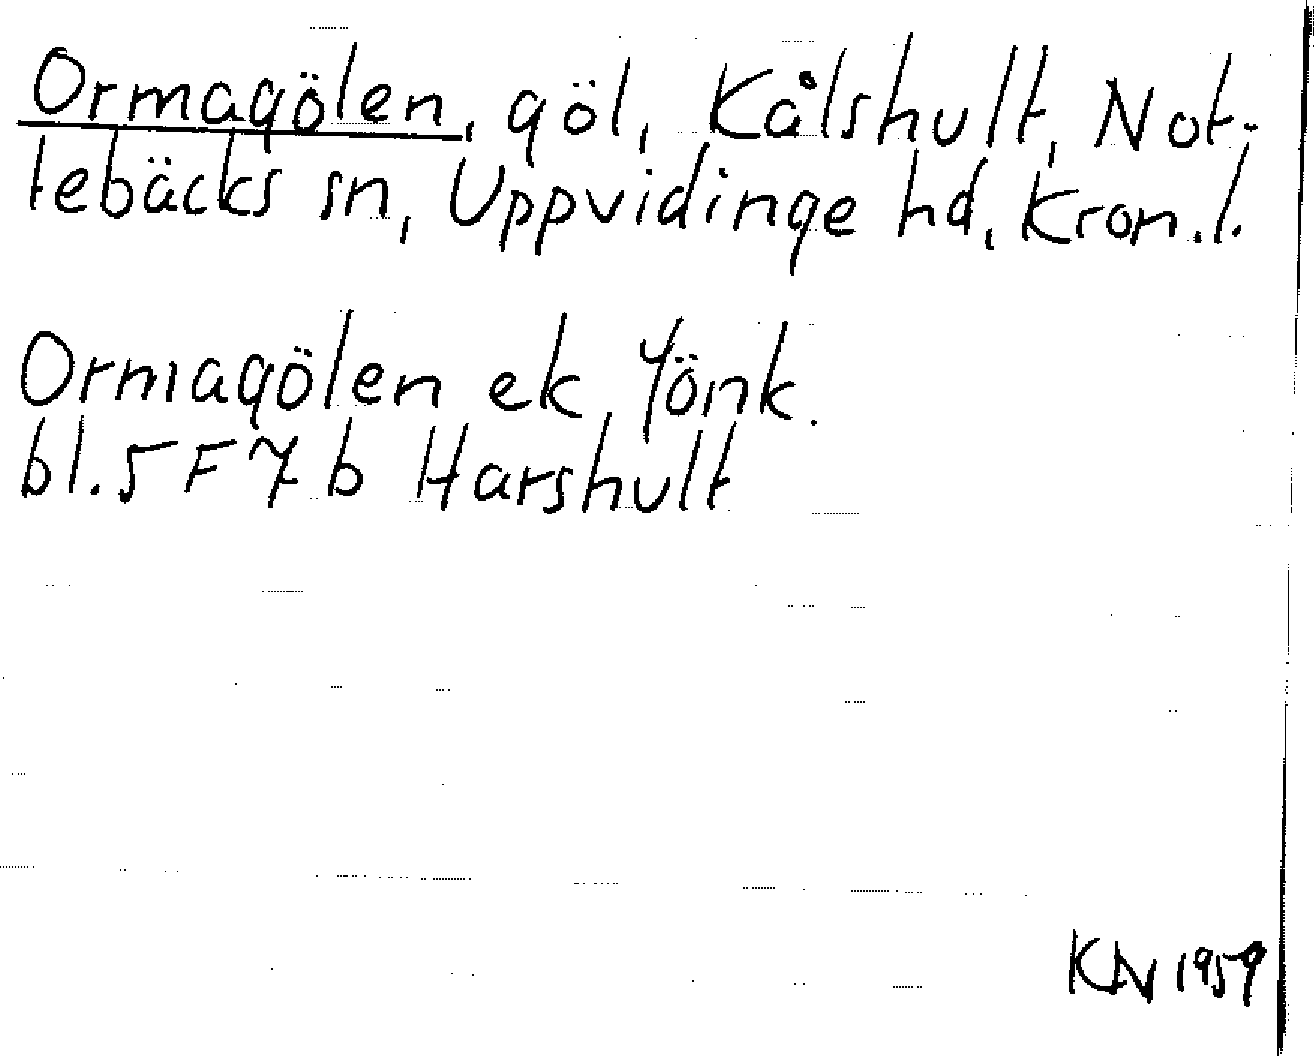 Ormagölen, göl, Kålshult, Not-
tebäcks sn, Uppvidinge hd, Kron.l.
Ormagölen ek Jönk.
bl. 5 F 7 b Harshult
KN 1959